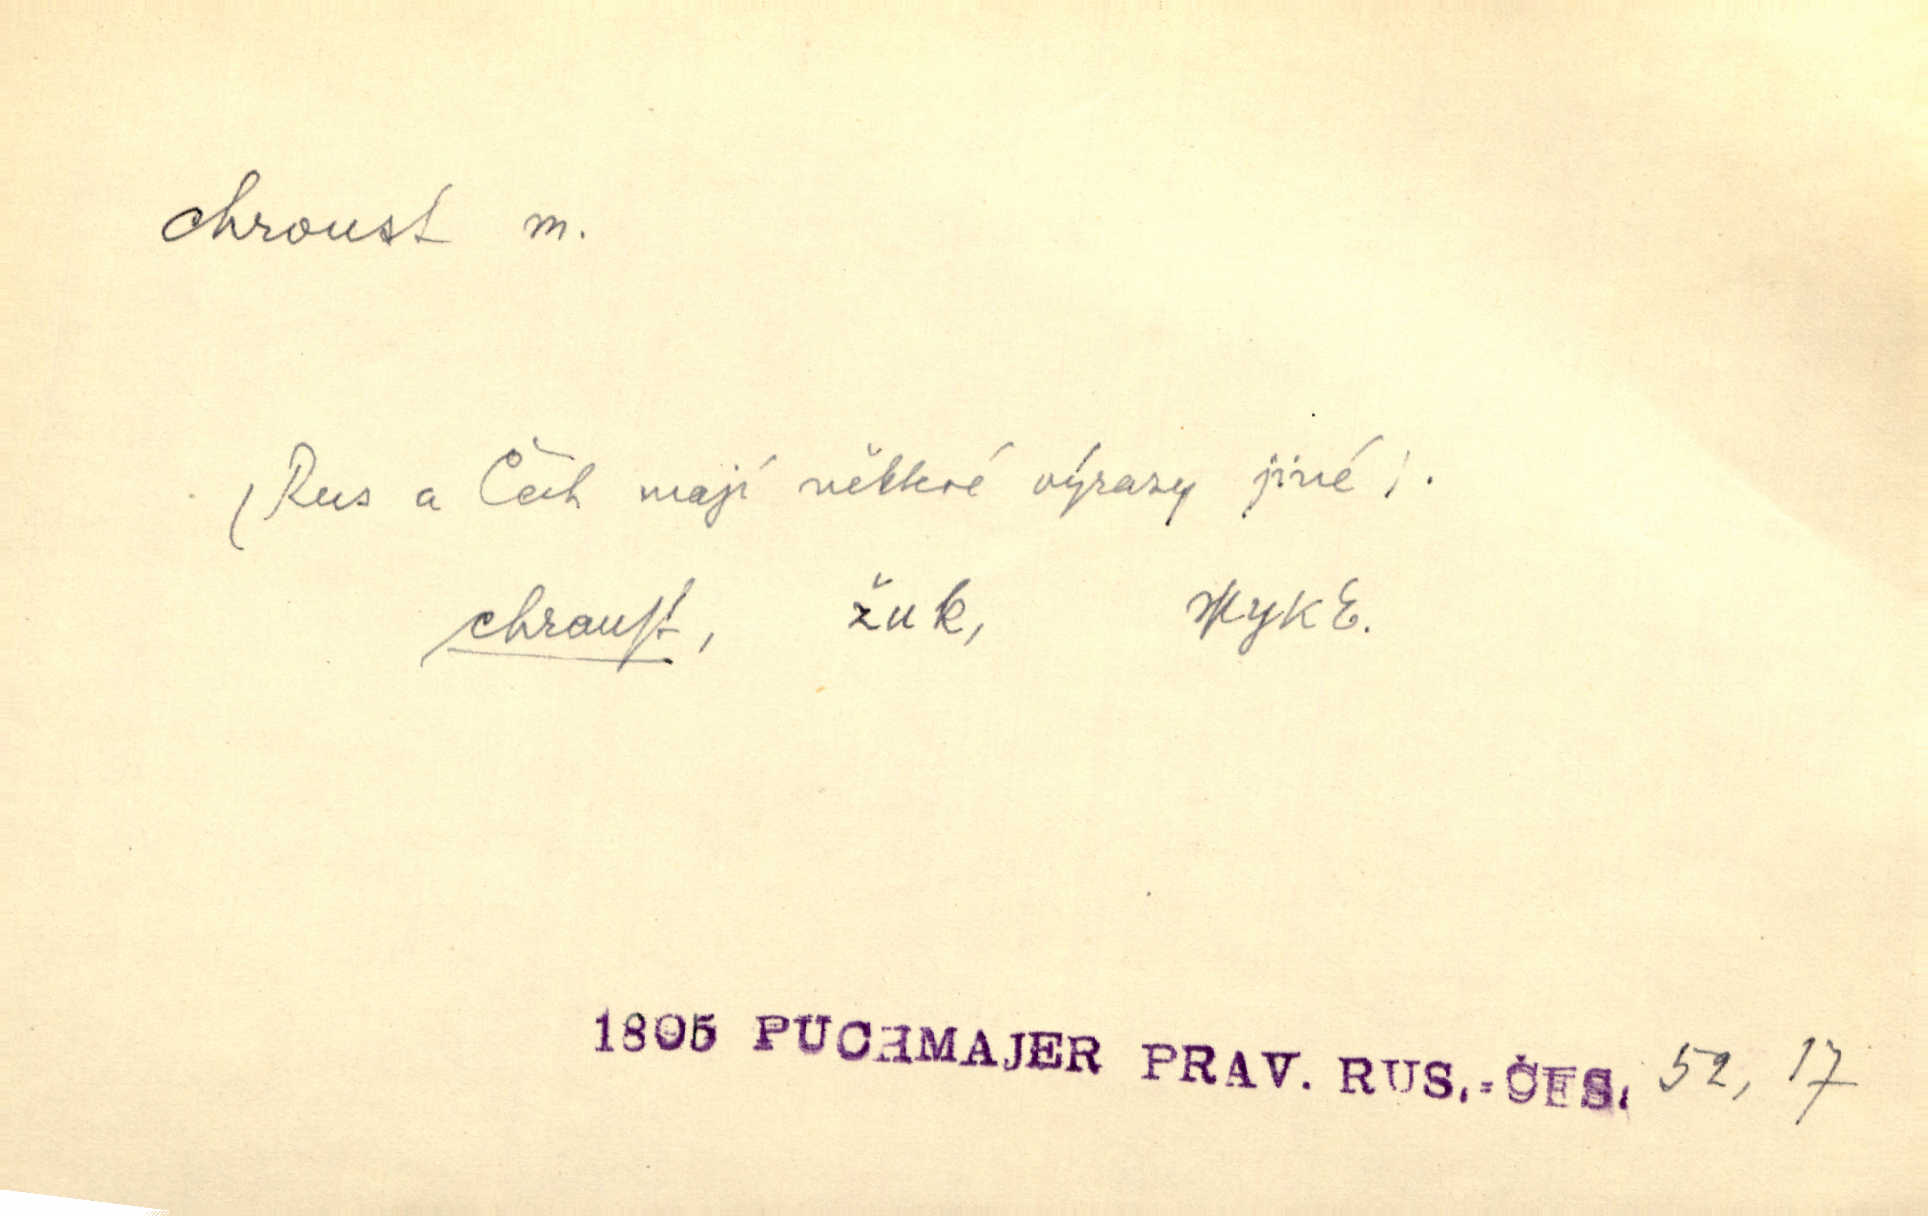 chroust m.
(Rus a Čech mají některé výrazy jiné).
chrauſt, žuk, жукъ.
1805 PUCHMAJER PRAV. RUS.-ČES. 52, 17